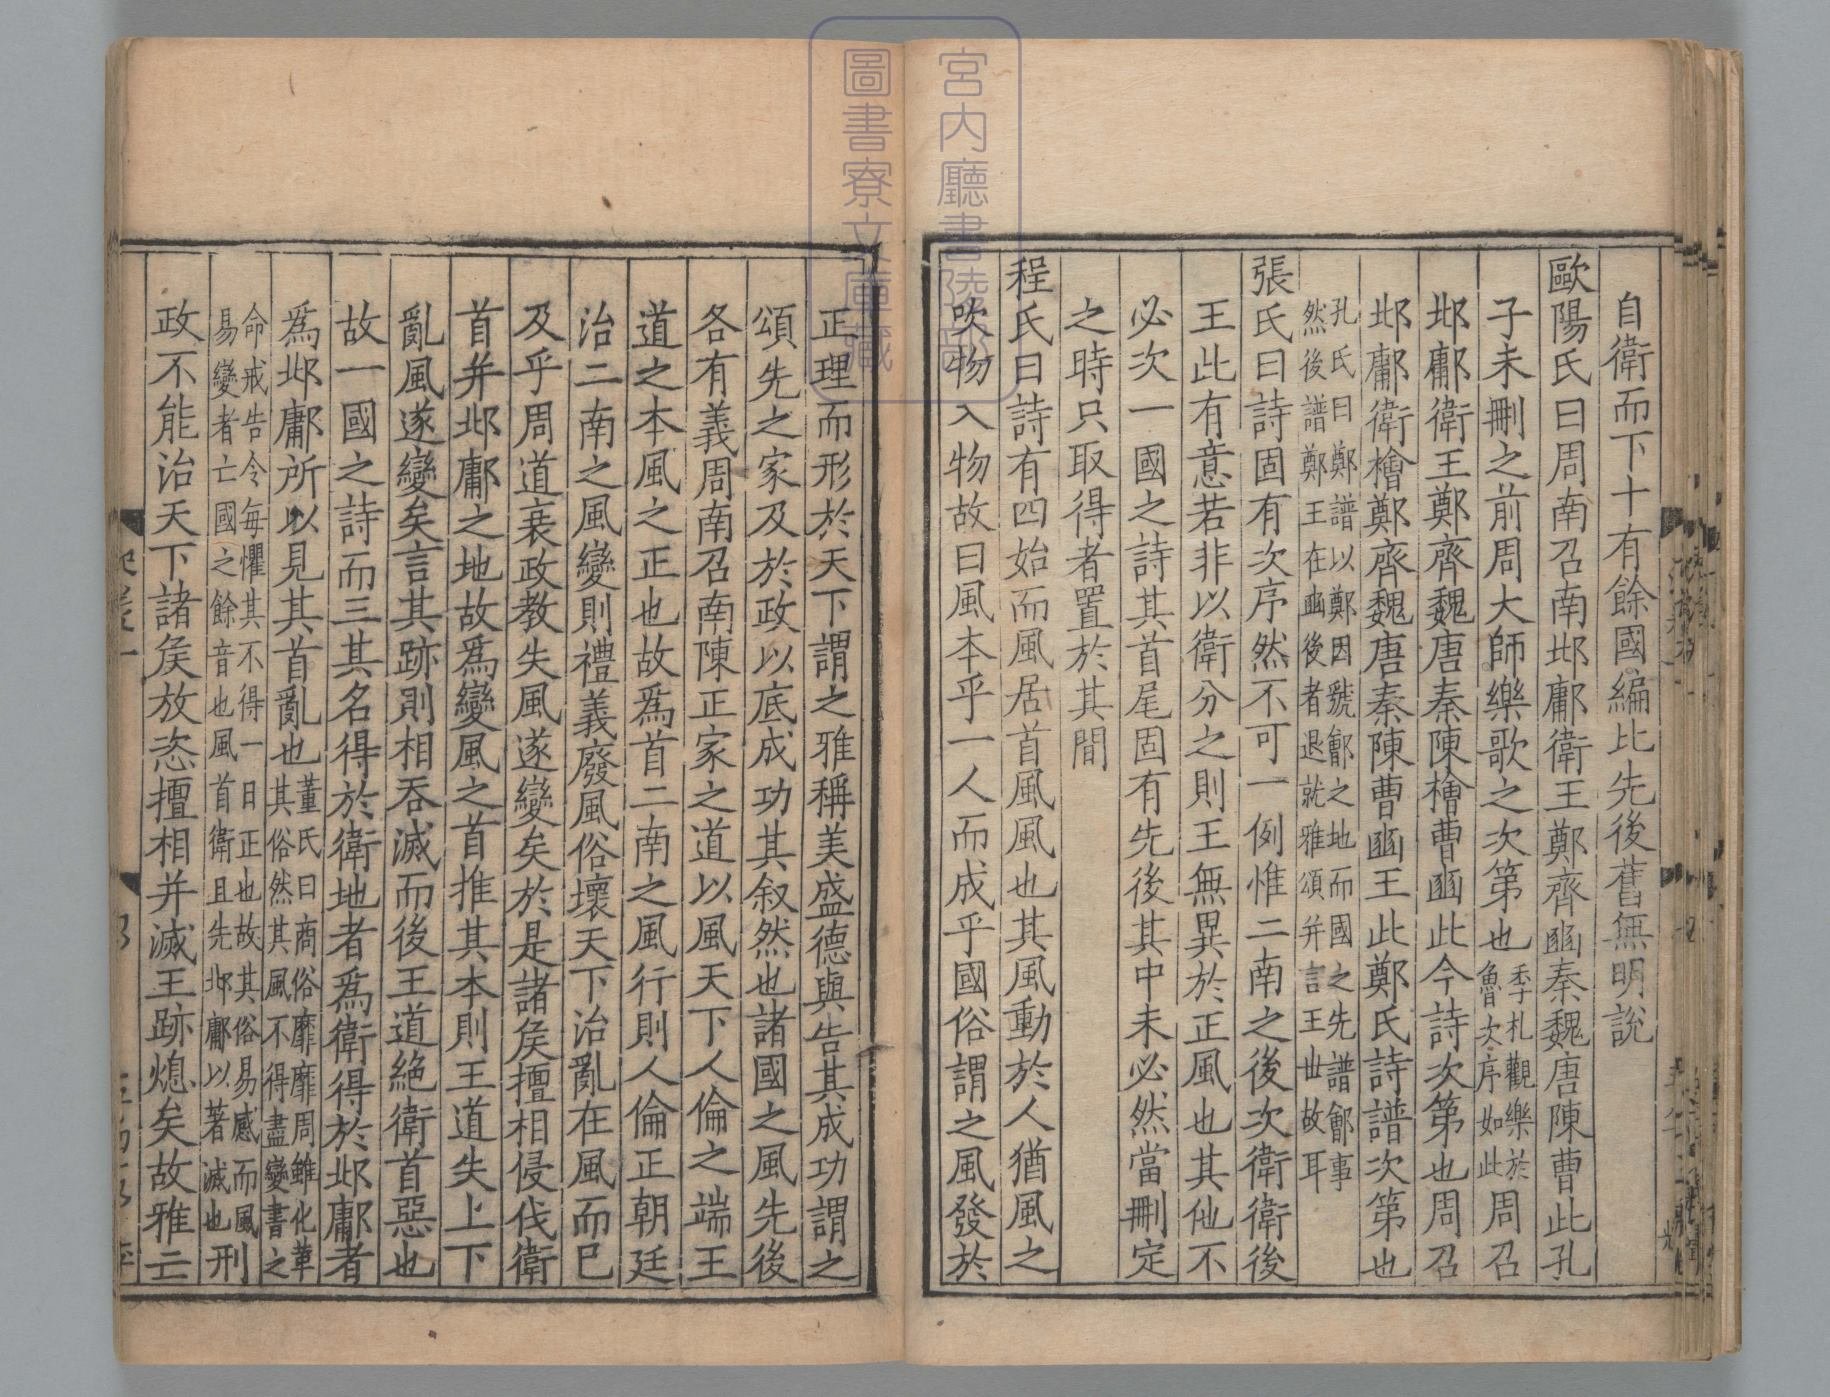 自衛而下十有餘國編比先後舊無明說
歐陽氏曰周南召南邶鄘衛王鄭齊豳秦魏唐陳曹此孔
子未刪之前周大師樂歌之次第也季札觀樂於魯次序如此周召
邶鄘衛王鄭齊魏唐秦陳檜曹豳此今詩次第也周召
邶鄘衛檜鄭齊魏唐秦陳曹豳王此鄭氏詩譜次第也
孔氏曰鄭譜以鄭因虢鄶之地而國之先譜鄶事
然後譜鄭王在豳後者退就雅頌并言王世故耳
張氏曰詩固有次序然不可一例惟二南之後次衛衛後
王此有意若非以衛分之則王無異於正風也其他不
必次一國之詩其首尾固有先後其中未必然當刪定
之時只取得者置於其間
程氏曰詩有四始而風居首風風也其風動於人猶風之
吹物入物故曰風本乎一人而成乎國俗謂之風發於
正理而形於天下謂之雅稱美盛德與告其成功謂之
頌先之家及於政以底成功其叙然也諸國之風先後
各有義周南召南陳正家之道以風天下人倫之端王
道之本風之正也故爲首二南之風行則人倫正朝廷
治二南之風變則禮義廢風俗壞天下治亂在風而已
及乎周道衰政教失風遂變矣於是諸矦擅相侵伐衛
首并邶鄘之地故爲變風之首推其本則王道失上下
亂風遂變矣言其跡則相吞滅而後王道絶衛首惡也
故一國之詩而三其名得於衛地者爲衛得於邶鄘者
爲邶鄘所以見其首亂也董氏曰商俗靡靡周雖化革其俗然其風不得盡變書之
命戒告令每懼其不得一日正也故其俗易感而風
易變者亡國之餘音也風首衛且先邶鄘以著滅也刑
政不能治天下諸矦放恣擅相并滅王跡熄矣故雅亡
宮內廳書陵部
圖書寮文庫藏